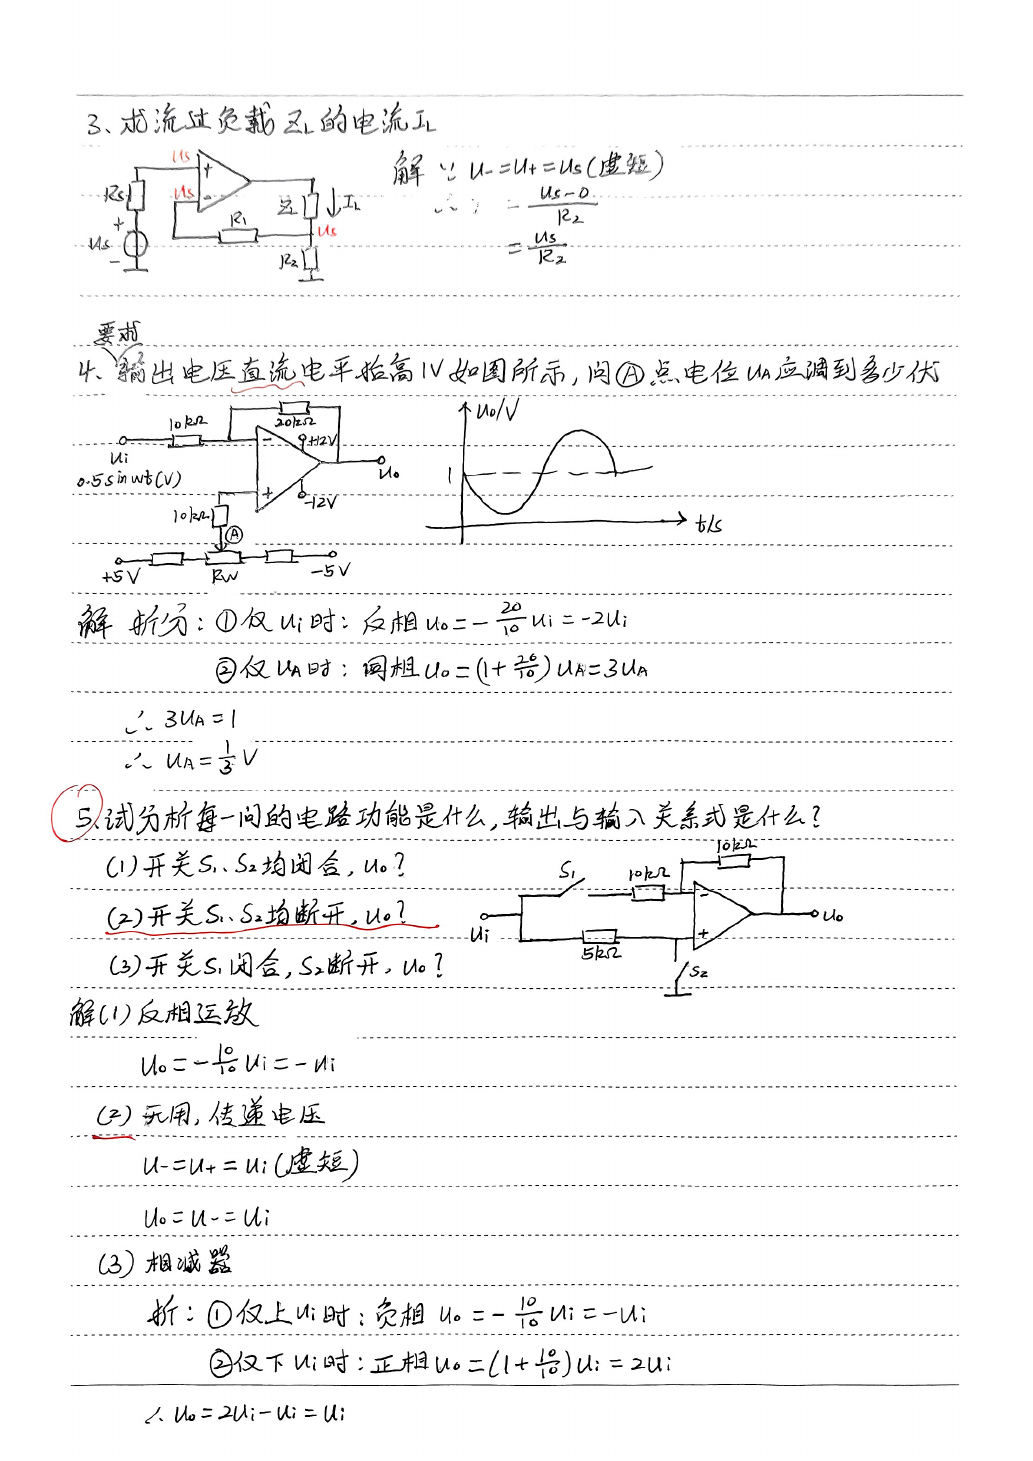 3、求流过负载ZL的电流IL
us
us
Rs
+
-
us
+
-
R1
ZL
IL
us
R2
解 ∵ u-=u+=us(虚短)
∴ = us-0/R2
= us/R2
要求
4、输出电压直流电平抬高1V如图所示,问Ⓐ点电位uA应调到多少伏
10kΩ
20kΩ
+12V
-
+
ui
0.5sinwt(V)
uo
-12V
10kΩ
Ⓐ
+5V
RW
-5V
uo/V
1
t/s
解 拆分:①仅ui时:反相uo=-20/10 ui=-2ui
②仅uA时:同相uo=(1+20/10)uA=3uA
∴ 3uA=1
∴ uA=1/3 V
5、试分析每一问的电路功能是什么,输出与输入关系式是什么?
(1)开关S1、S2均闭合,uo?
(2)开关S1、S2均断开,uo?
(3)开关S1闭合,S2断开,uo?
S1
10kΩ
10kΩ
-
+
ui
uo
5kΩ
S2
解(1)反相运放
uo=-10/10 ui=-ui
(2)无用,传递电压
u-=u+=ui(虚短)
uo=u-=ui
(3)相减器
拆:①仅上ui时:负相 uo=-10/10 ui=-ui
②仅下ui时:正相uo=(1+10/10)ui=2ui
∴ uo=2ui-ui=ui